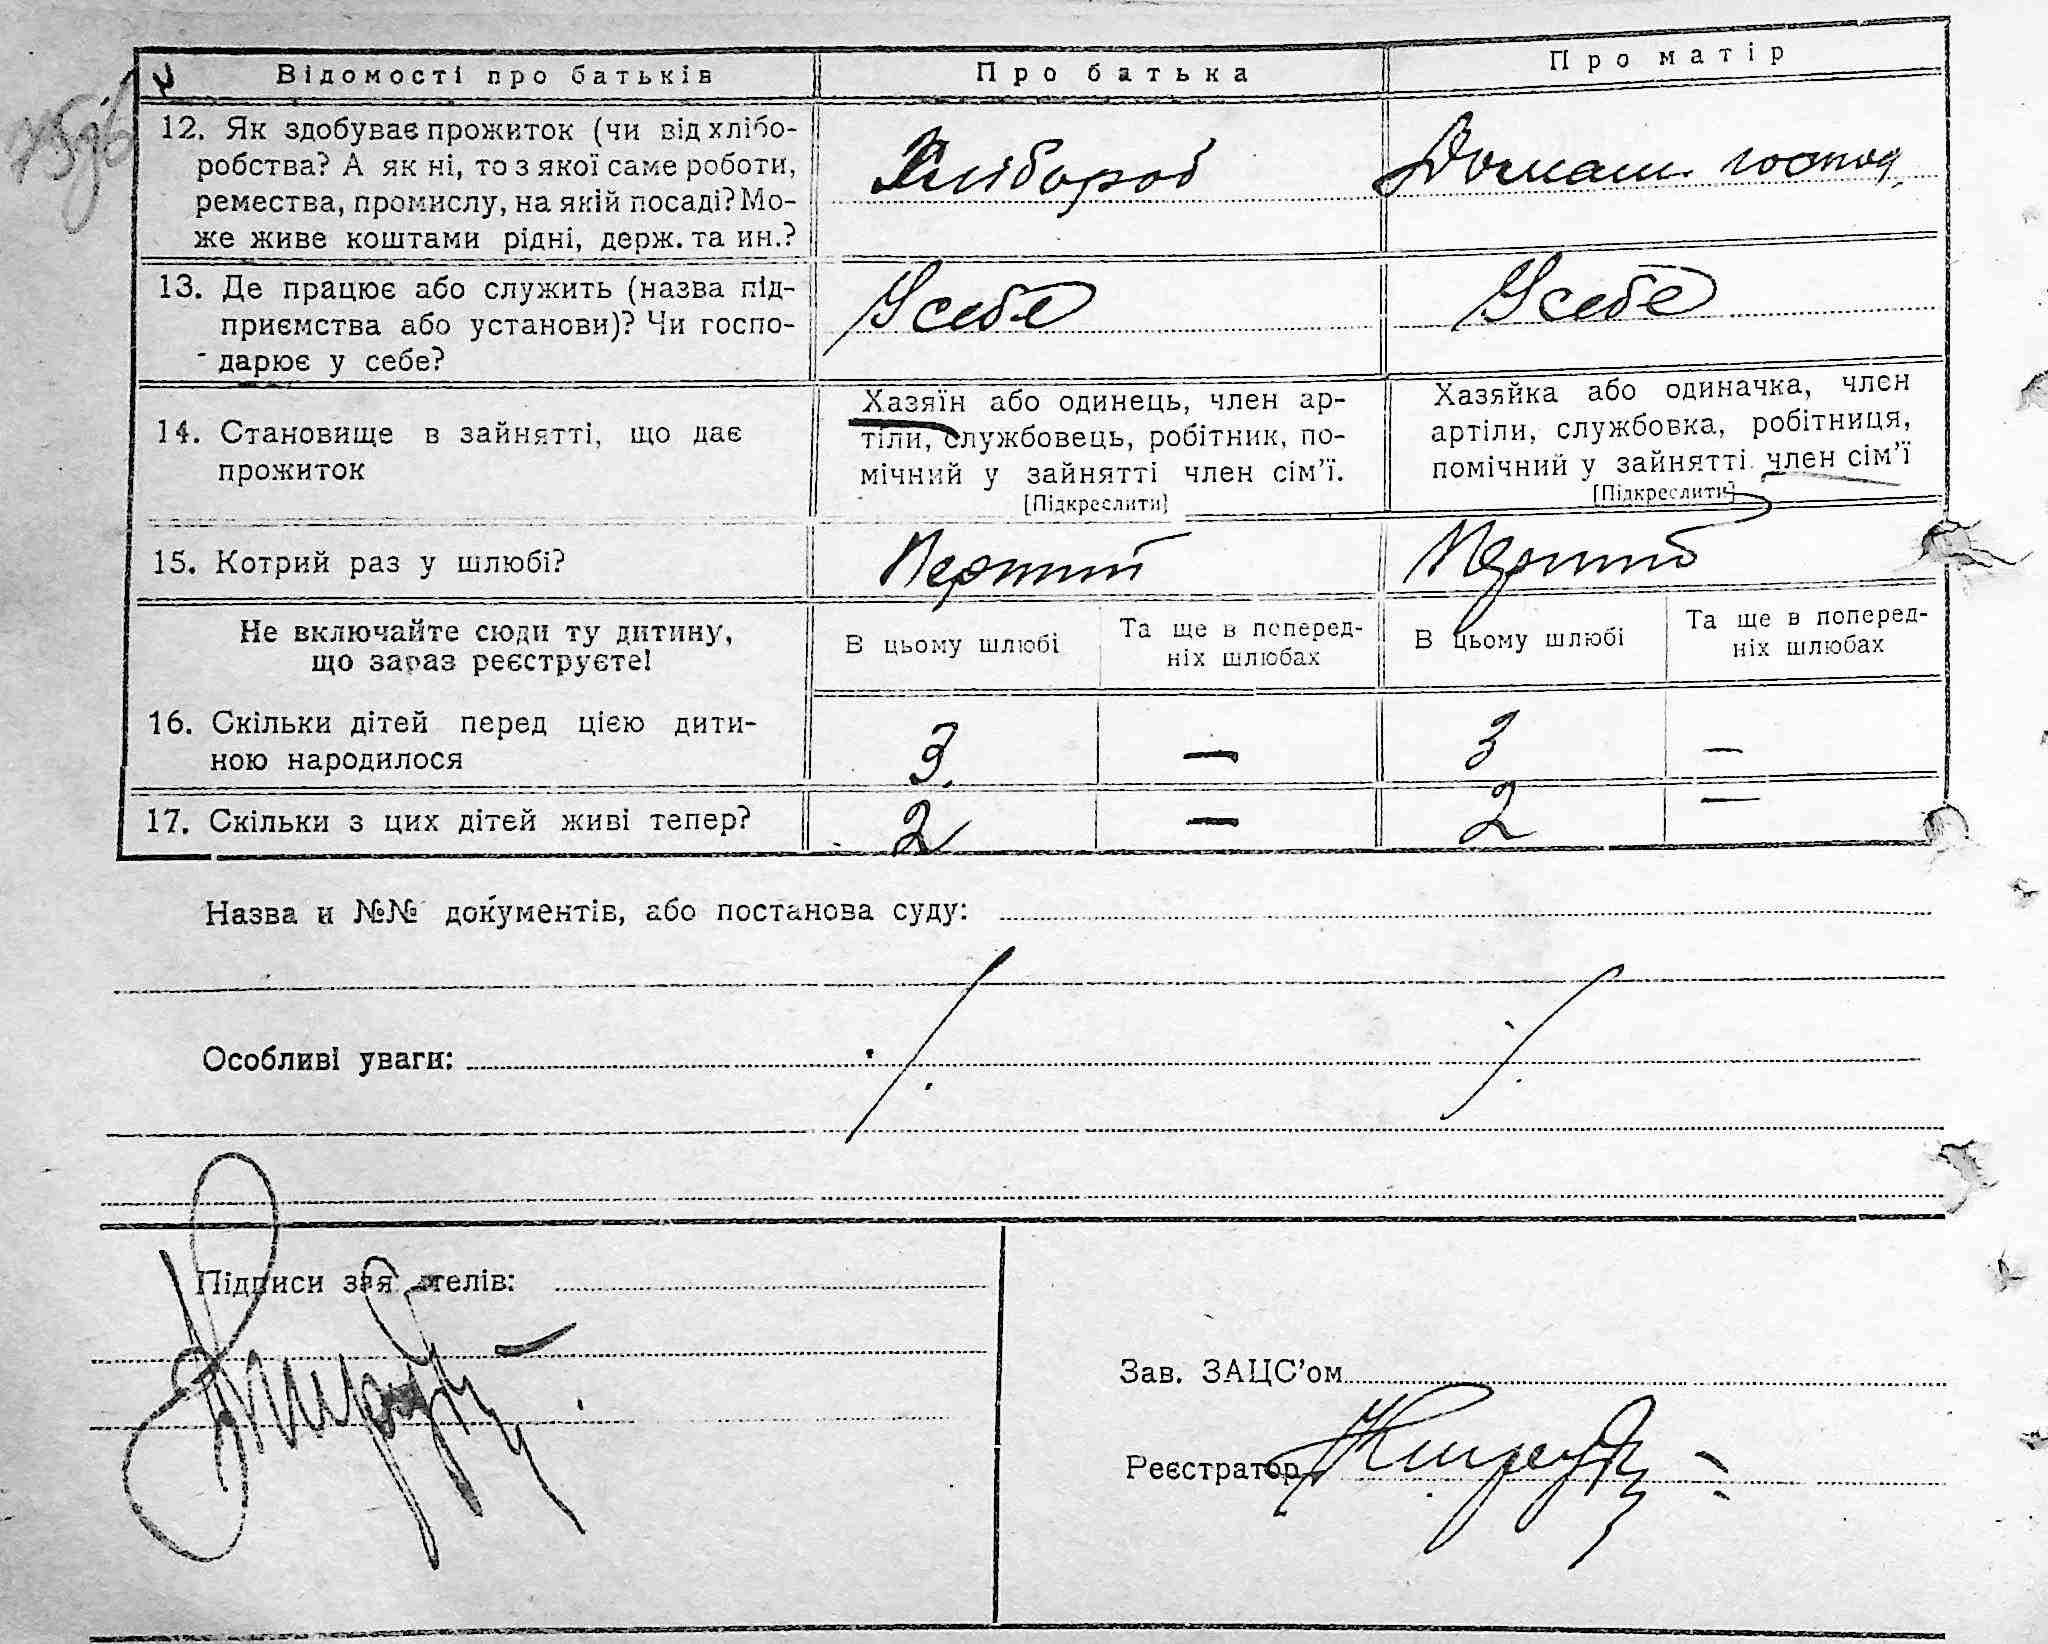 Відомості про батьків Про батька Про матір
12. Як здобуває прожиток (чи від хлібо-
робства? А як ні, то з якої саме роботи,
ремества, промислу, на якій посаді? Мо-
же живе коштами рідні, держ. та ин.?
Хлібороб Домашн. господ.
13. Де працює або служить (назва під-
приємства або установи)? Чи госпо-
дарює у себе?
У себе У себе
14. Становище в зайнятті, що дає
прожиток
Хазяїн або одинець, член ар-
тіли, службовець, робітник, по-
мічний у зайнятті член сім'ї.
[Підкреслити]
Хазяйка або одиначка, член
артіли, службовка, робітниця,
помічний у зайнятті член сім'ї
[Підкреслити]
15. Котрий раз у шлюбі? Перший Перший
Не включайте сюди ту дитину,
що зараз реєструєте!
В цьому шлюбі
Та ще в поперед-
ніх шлюбах
В цьому шлюбі
Та ще в поперед-
ніх шлюбах
16. Скільки дітей перед цією дити-
ною народилося
3. — 3 —
17. Скільки з цих дітей живі тепер? 2 — 2 —
Назва и №№ документів, або постанова суду:
Особливі уваги:
Підписи заявителів:
Зав. ЗАЦС'ом
Реєстратор